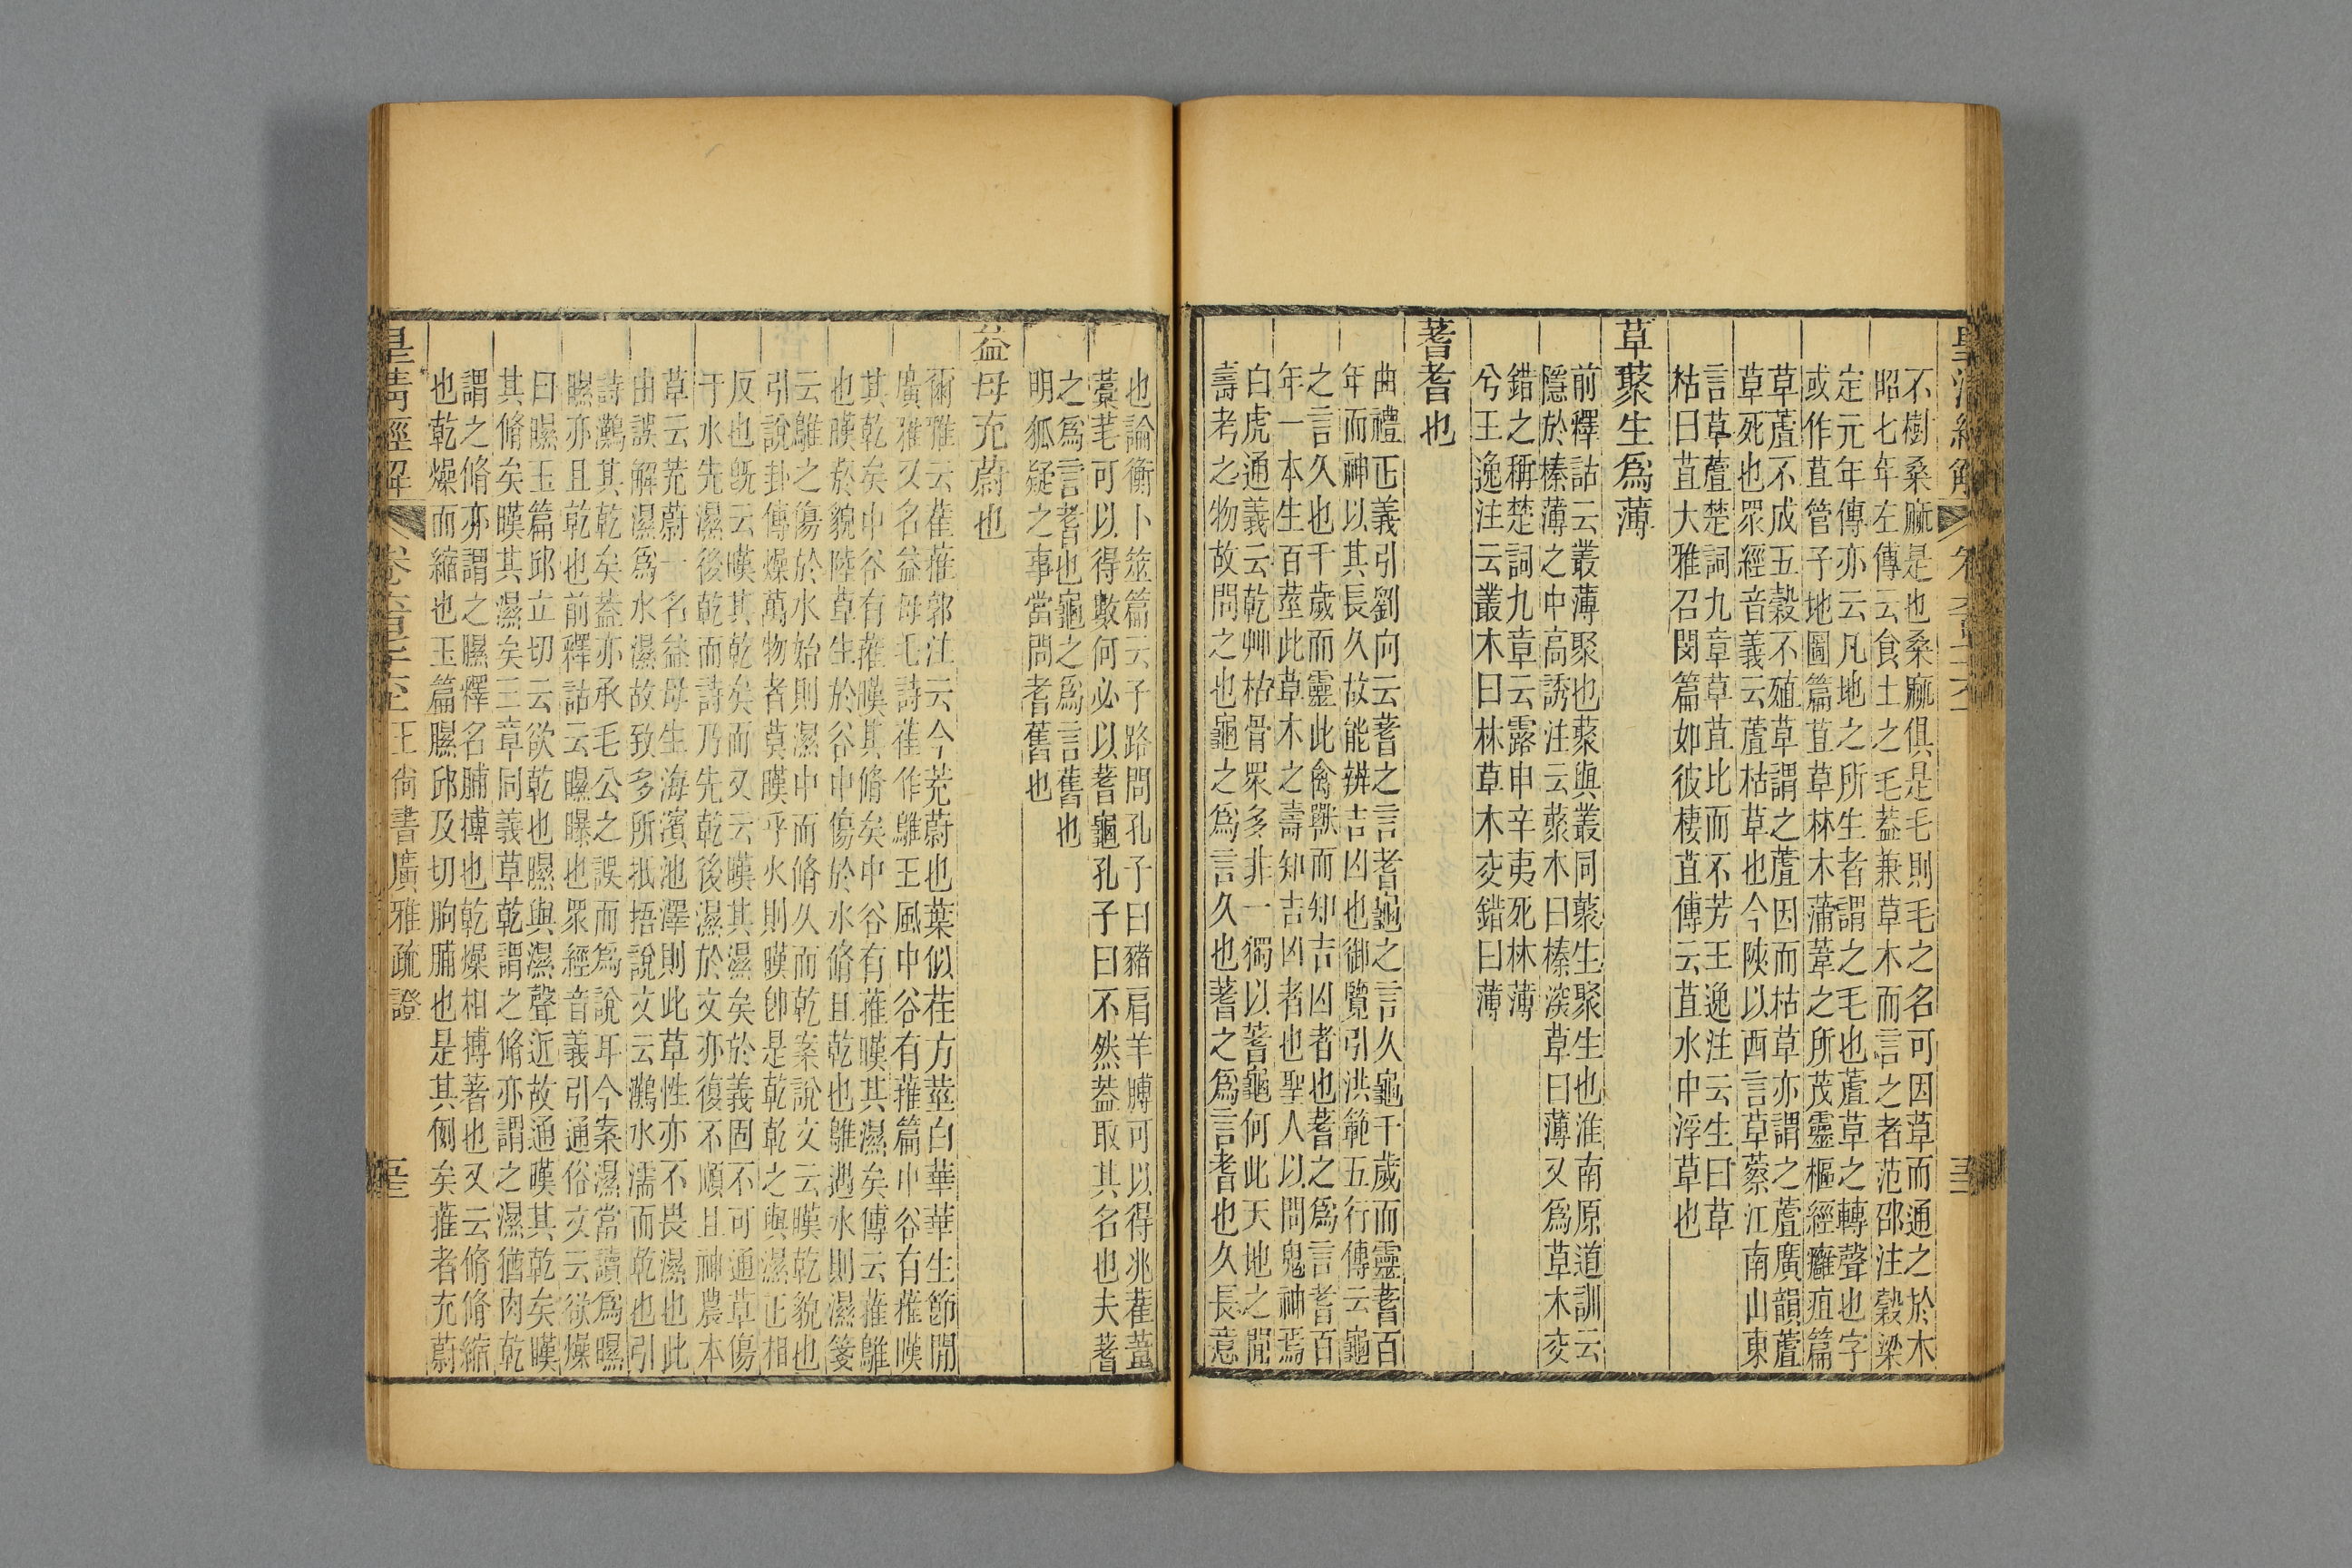 皇清經解
不樹桑麻是也桑麻俱是毛則毛之名可因草而通之於木
昭七年左傳云食土之毛葢兼草木而言之者范邵注穀梁
定元年傳亦云凡地之所生者謂之毛也蘆草之轉聲也字
或作苴管子地圖篇苴草林木蒲葦之所茂靈樞經癰疽篇
草蘆不成五穀不殖草謂之蘆因而枯草亦謂之蘆廣韻蘆
草死也眾經音義云蘆枯草也今陝以西言草蔡江南山東
言草蘆楚詞九章草苴比而不芳王逸注云生曰草
枯曰苴大雅召閔篇如彼棲苴傳云苴水中浮草也
草藂生爲薄
前釋詁云叢薄聚也藂與叢同藂生聚生也淮南原道訓云
隱於榛薄之中高誘注云藂木曰榛深草曰薄又爲草木交
錯之稱楚詞九章云露申辛夷死林薄
兮王逸注云叢木曰林草木交錯曰薄
蓍耆也
曲禮正義引劉向云蓍之言耆龜之言久龜千歲而靈蓍百
年而神以其長久故能辨吉凶也御覽引洪範五行傳云龜
之言久也千歲而靈此禽獸而知吉凶者也蓍之爲言耆百
年一本生百莖此草木之壽知吉凶者也聖人以問鬼神焉
白虎通義云乾艸枯骨眾多非一獨以蓍龜何此天地之閒
壽考之物故問之也龜之爲言久也蓍之爲言耆也久長意
也論衡卜筮篇云子路問孔子曰豬肩羊膊可以得兆雚葦
藁芼可以得數何必以蓍龜孔子曰不然葢取其名也夫蓍
之爲言耆也龜之爲言舊也
明狐疑之事當問耆舊也
益母充蔚也
爾雅云萑蓷郭注云今茺蔚也葉似荏方莖白華華生節閒
廣雅又名益母毛詩萑作鵻王風中谷有蓷篇中谷有蓷暵
其乾矣中谷有蓷暵其脩矣中谷有蓷暵其濕矣傳云蓷鵻
也暵菸貌陸草生於谷中傷於水脩且乾也鵻遇水則濕箋
云鵻之傷於水始則濕中而脩久而乾案說文云暵乾貌也
引說卦傳燥萬物者莫暵乎火則暵卽是乾乾之與濕正相
反也旣云暵其乾矣而又云暵其濕矣於義固不可通草傷
于水先濕後乾而詩乃先乾後濕於文亦復不順且神農本
草云茺蔚一名益母生海濱池澤則此草性亦不畏濕也此
由誤解濕爲水濕故致多所抵捂說文云灘水濡而乾也引
詩灘其乾矣葢亦承毛公之誤而爲說耳今案濕當讀爲㬤
㬤亦且乾也前釋詁云㬤曝也眾經音義引通俗文云欲燥
曰㬤玉篇邱立切云欲乾也㬤與濕聲近故通暵其乾矣暵
其脩矣暵其濕矣三章同義草乾謂之脩亦謂之濕猶肉乾
謂之脩亦謂之㬤釋名脯搏也乾燥相搏著也又云脩脩縮
也乾燥而縮也玉篇㬤邱及切朐脯也是其側矣蓷者充蔚
皇清經解
王尚書廣雅疏證